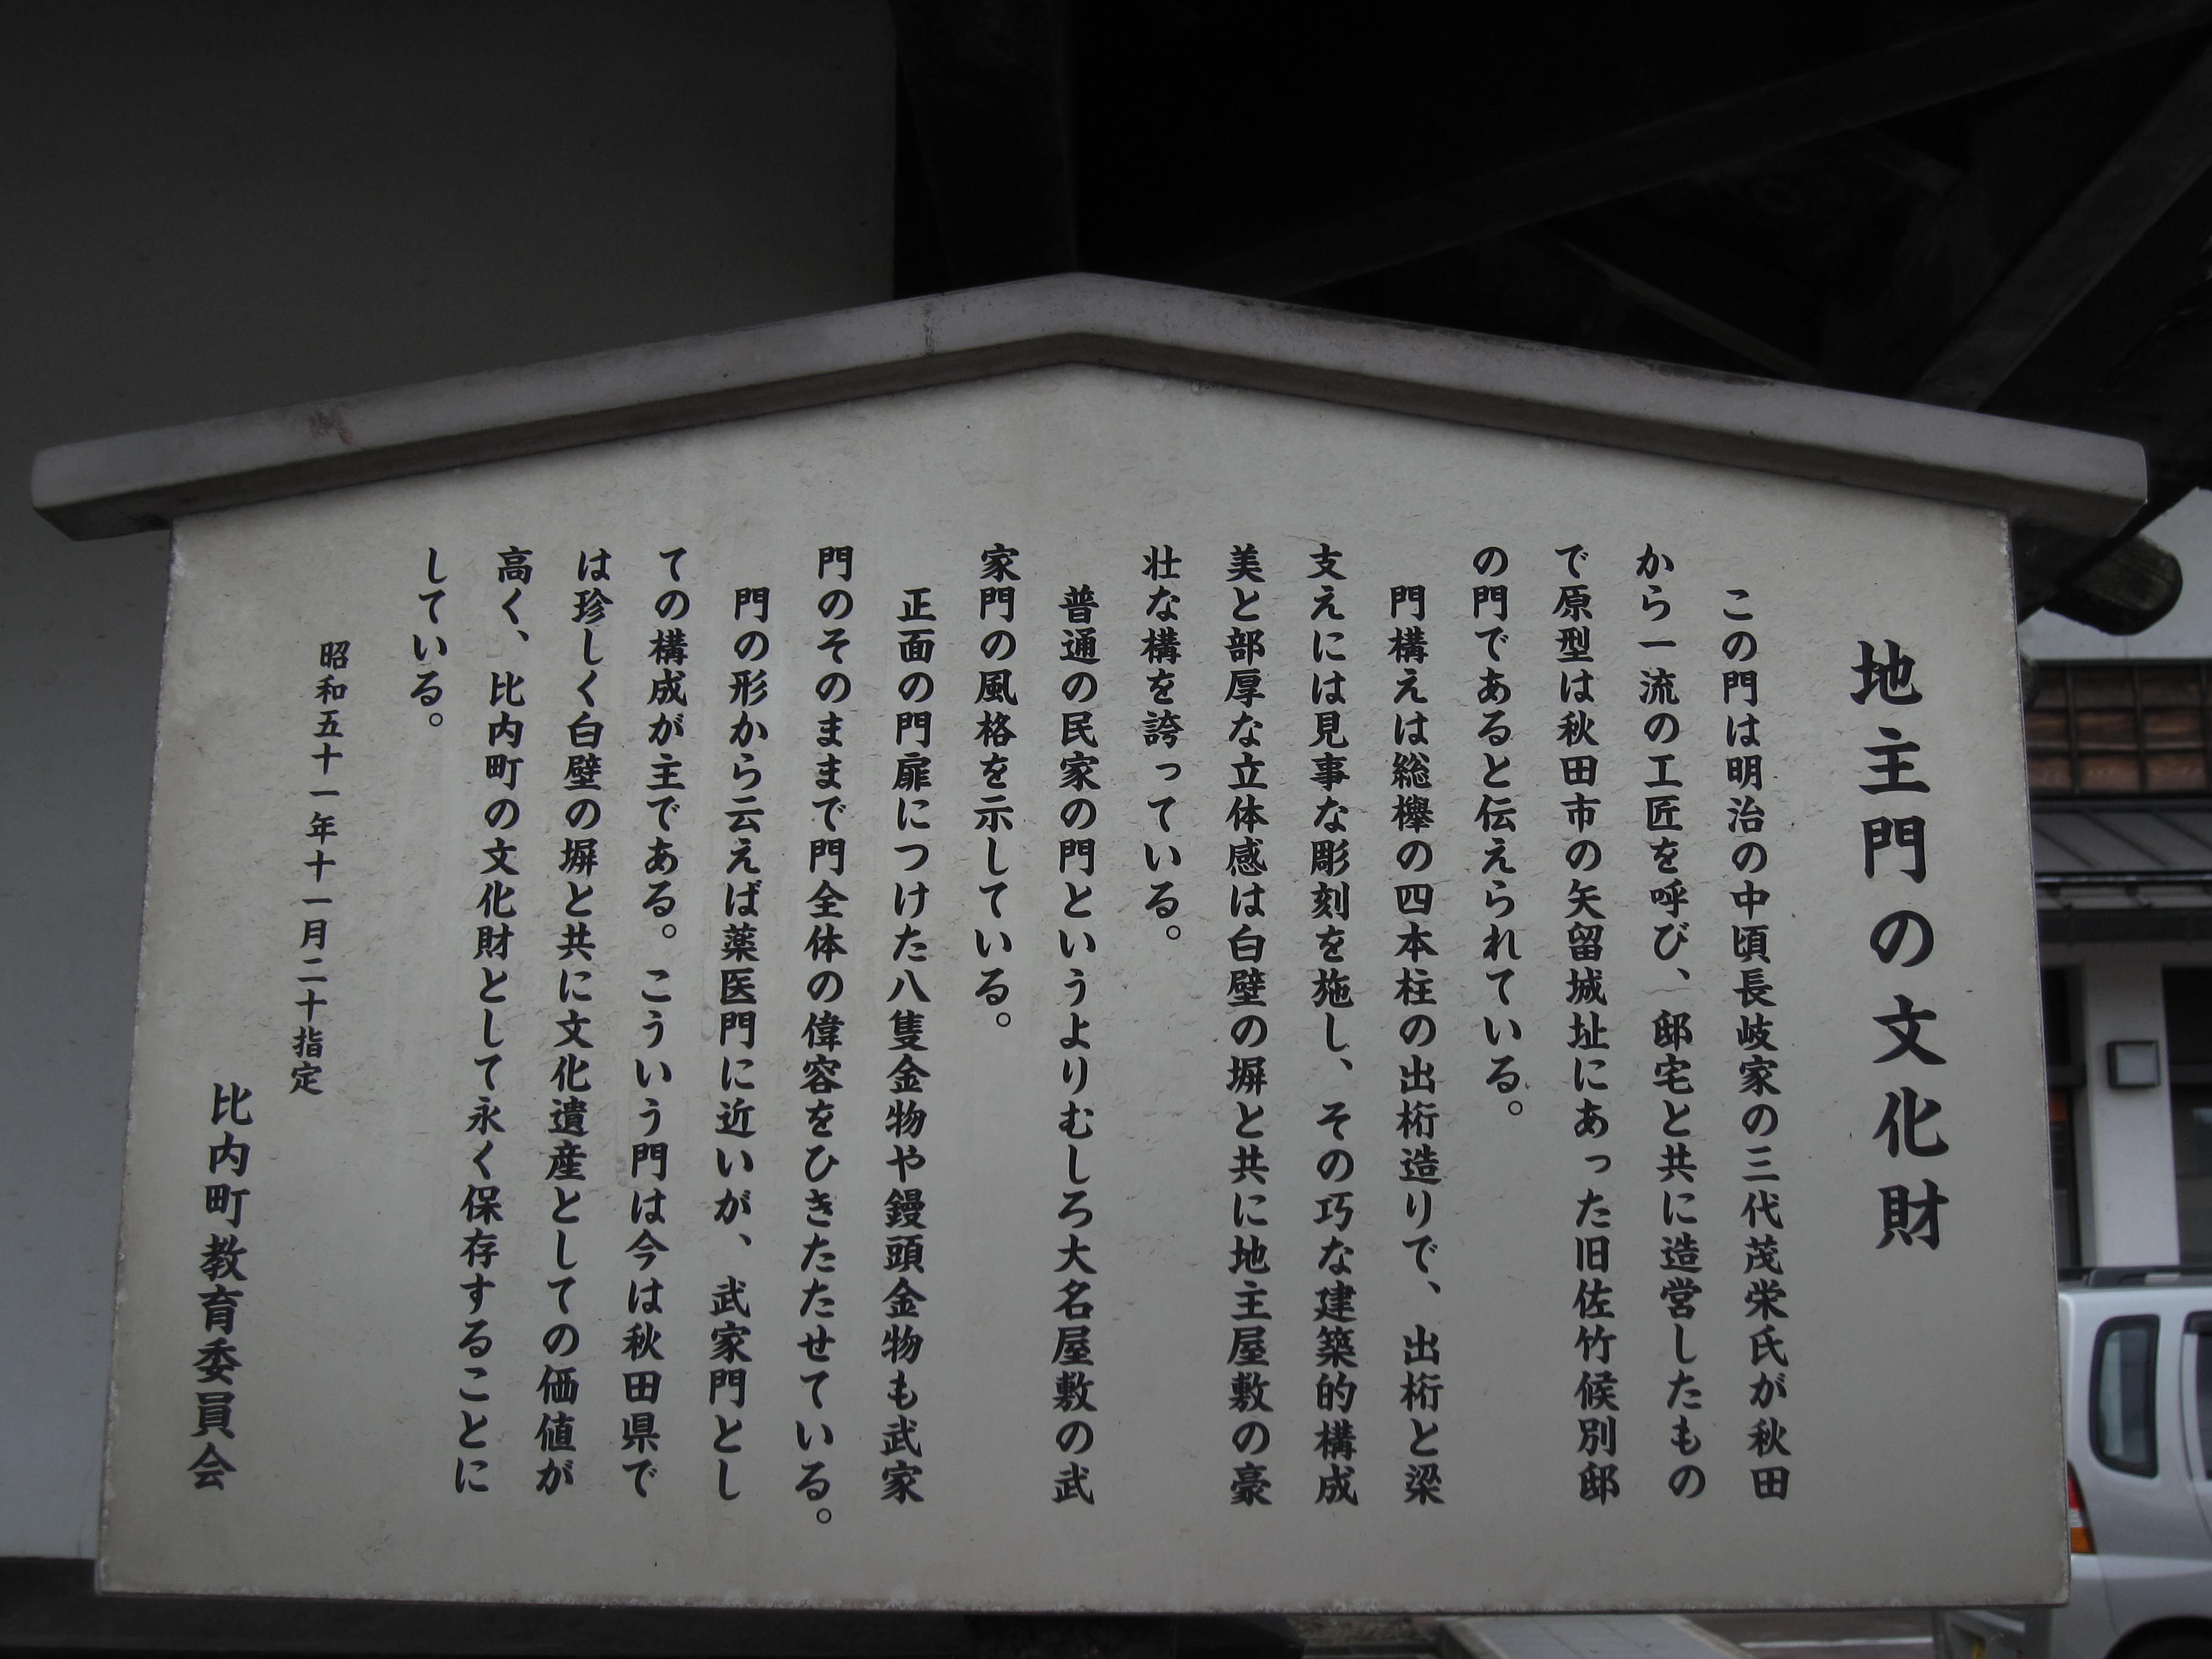 地主門の文化財
この門は明治の中頃長岐家の三代茂栄氏が秋田
から一流の工匠を呼び、邸宅と共に造営したもの
で原型は秋田市の矢留城址にあった旧佐竹候別邸
の門であると伝えられている。
門構えは総欅の四本柱の出桁造りで、出桁と梁
支えには見事な彫刻を施し、その巧な建築的構成
美と部厚な立体感は白壁の塀と共に地主屋敷の豪
壮な構を誇っている。
普通の民家の門というよりむしろ大名屋敷の武
家門の風格を示している。
正面の門扉につけた八隻金物や鏝頭金物も武家
門のそのままで門全体の偉容をひきたたせている。
門の形から云えば薬医門に近いが、武家門とし
ての構成が主である。こういう門は今は秋田県で
は珍しく白壁の塀と共に文化遺産としての価値が
高く、比内町の文化財として永く保存することに
している。
昭和五十一年十一月二十指定
比内町教育委員会